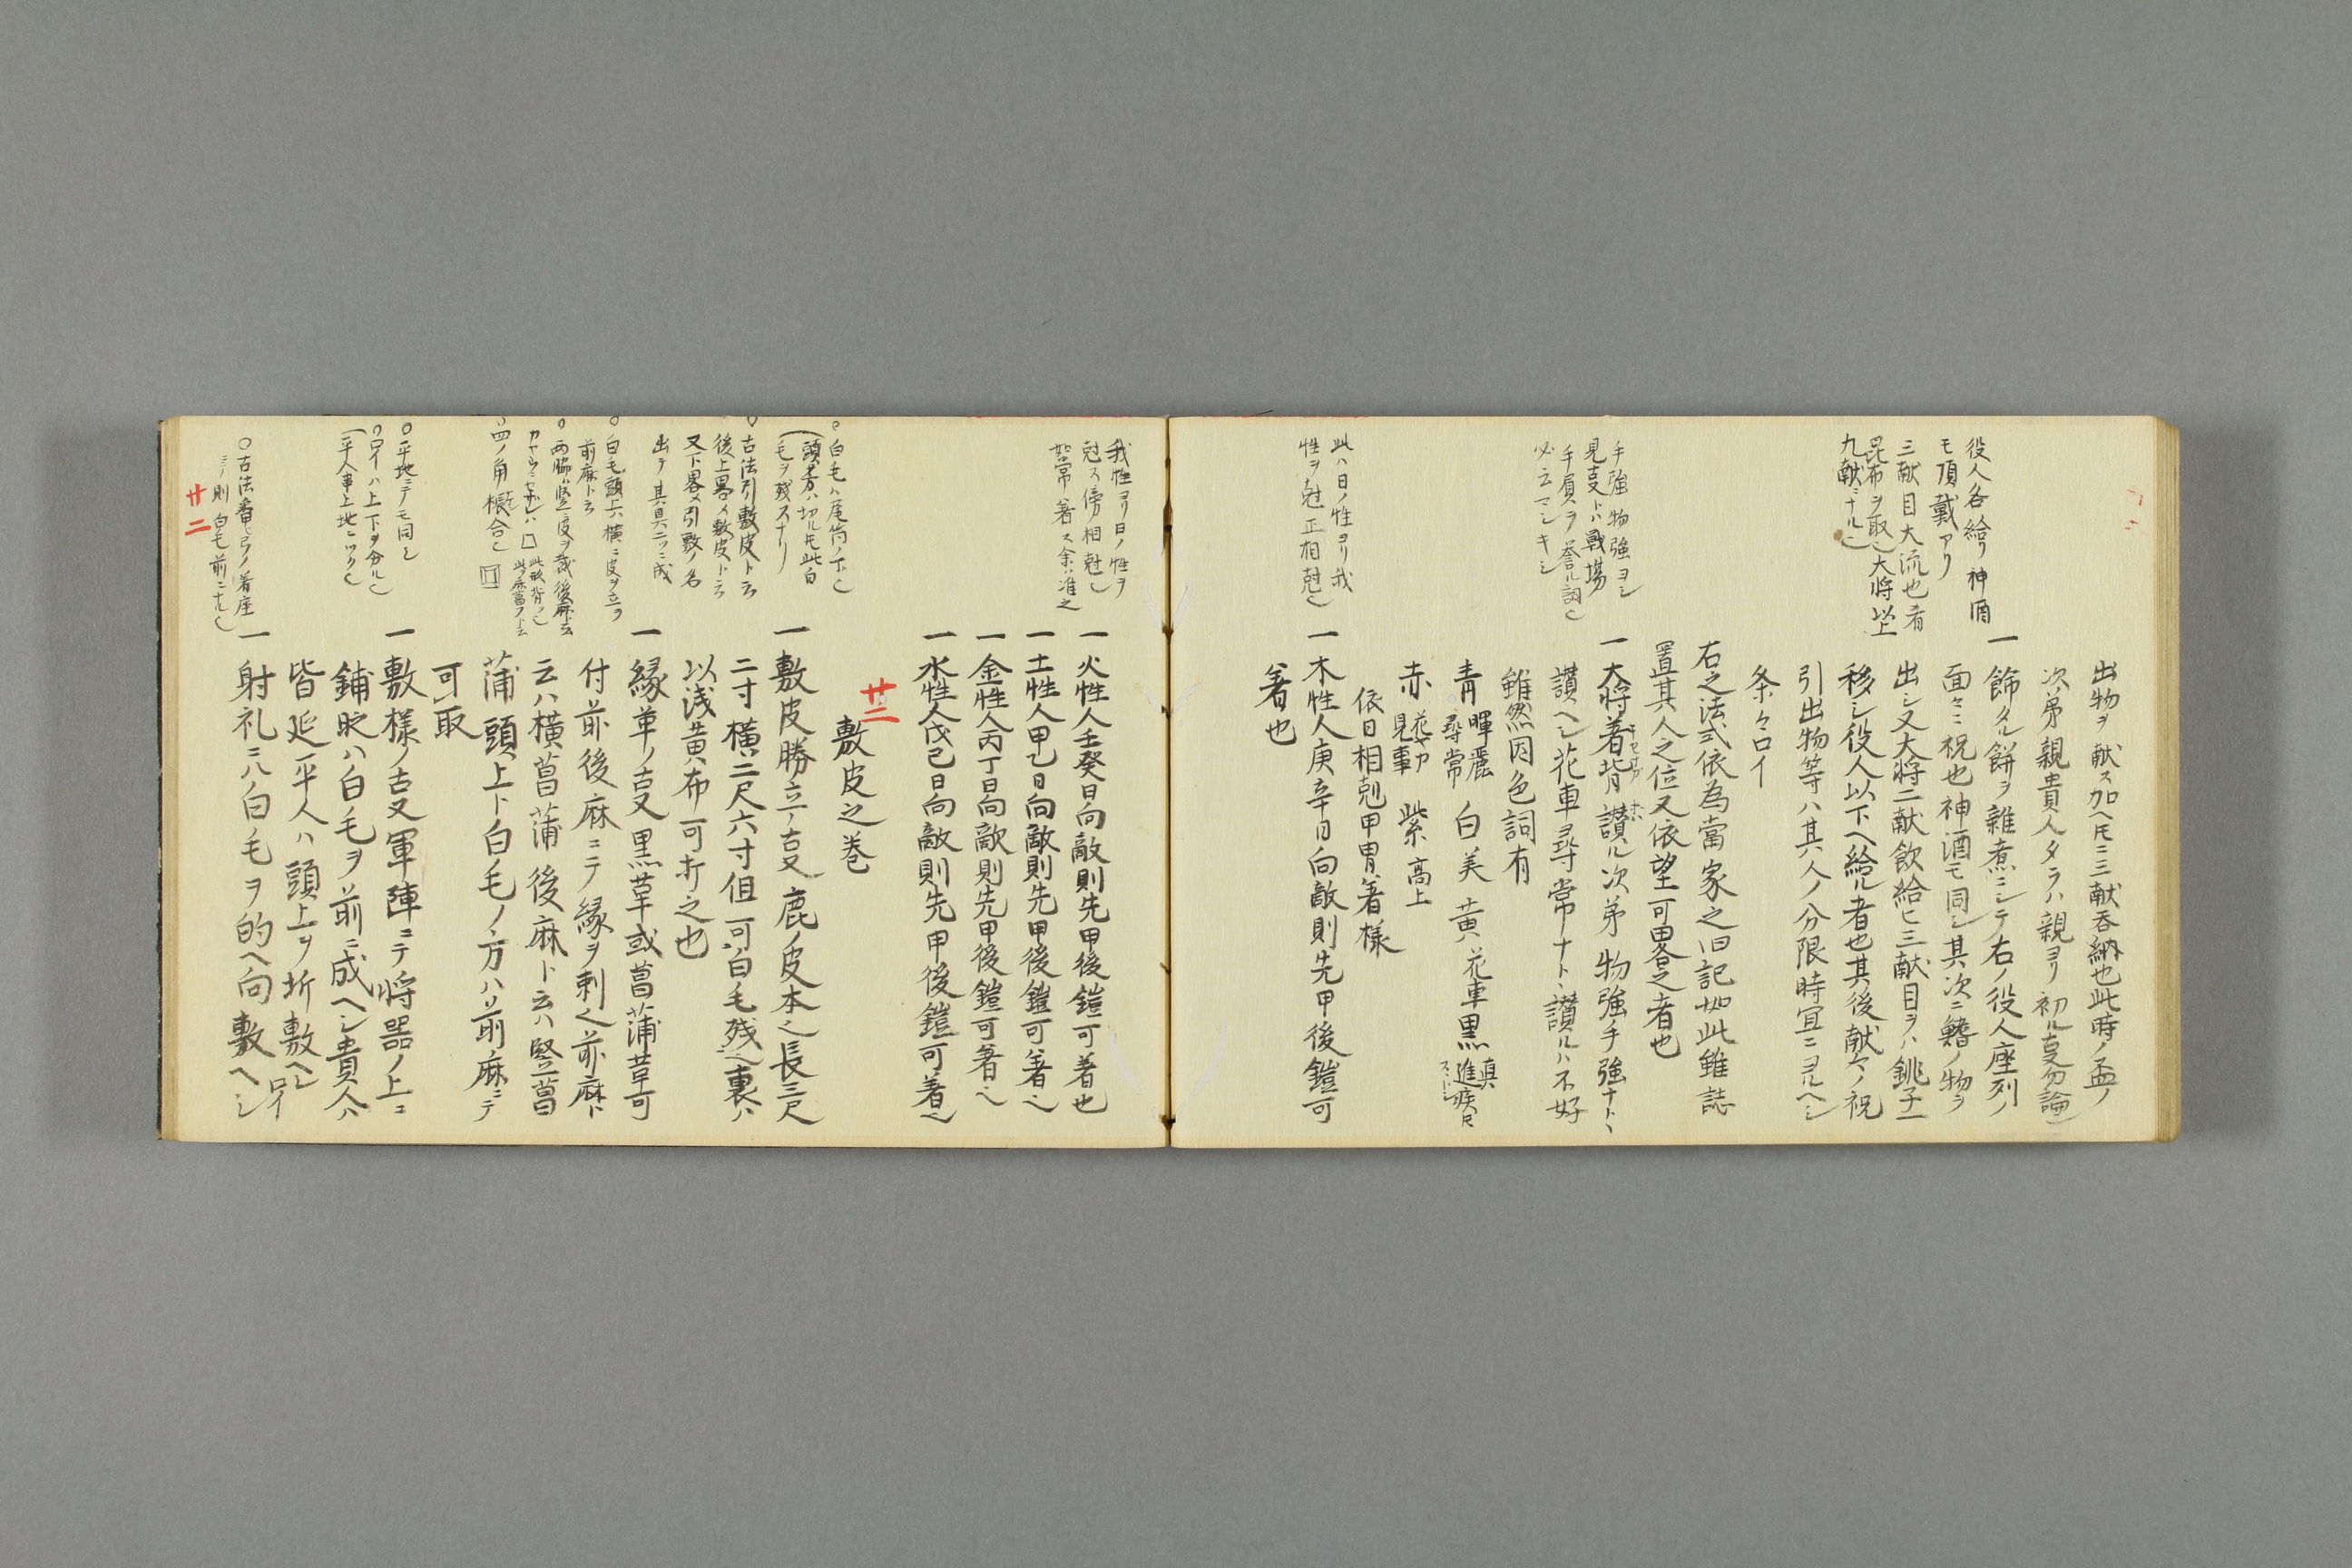 出物ヲ献ス加ヘ圧ニ三献呑納也此時ノ盃ノ
次弟親貴人タラハ親ヨリ初ル叓勿論
一飾タル餅ヲ雑煮ニシテ右ノ役人座列ノ
面々ニ祝也神酒モ同シ其次ニ鰭ノ物ヲ
出シ又大将二献飲給ヒ三献目ヲハ銚子ニ
移シ役人以下ヘ給ル者也其後献々ノ祝
引出物等ハ其人ノ分限時宜ニヨルヘシ
条々口イ
右之法式依為當家之旧記如此雖誌
置其人之位又依望可畧之者也
一大将着背讃ル次弟 物強手強ナト
讃ヘシ花車尋常ナト讃ルハ不好
雖然因色詞有
青 暉麗 尋常 白 美 黄 花車 黒 真 進疾尺
赤 花ヤカ 見事 紫 高上
依日相剋甲冑着様
一木性人庚辛日向敵則先甲後鎧可
着也
役人各給リ神酒
モ頂戴アリ
三献目大流也肴
昆布ヲ取大将以上
九献ニナル
手強物強ヨシ
見叓トハ戦場
手負ヲ誉ル詞也
必云マシキ
此ハ日ノ性ヨリ我
性ヲ尅正相尅也
一火性人壬癸日向敵則先甲後鎧可着也
一土性人甲乙日向敵則先甲後鎧可着也
一金性人丙丁日向敵則先甲後鎧可着也
一水性人戊己日向敵則先甲後鎧可着也
廿二
敷皮之巻
一敷皮勝立ノ叓鹿ノ皮本也長三尺
二寸横二尺六寸但可白毛残也裏ハ
以浅黄布可折之也
一縁革ノ叓黒革或菖蒲革可
付前後麻ニテ縁ヲ刺也前麻ト
云ハ横菖蒲後麻ト云ハ竪菖
蒲頭上ト白毛ノ方ハ前麻ニテ
可取
一敷様ノ叓軍陣ニテ将器ノ上ニ
鋪時ハ白毛ヲ前ニ成ヘシ貴人ハ
皆延平人ハ頭上ヲ折敷ヘシ口イ
一射礼ニハ白毛ヲ的ヘ向敷ヘシ
我性ヨリ日ノ性ヲ
尅ス傍相尅也
如常着ス余ハ准之
○白毛ハ尾筒ノ下也
頭ノ方ハ切ル圧此白
毛ヲ残スナリ
○古法引敷皮ト云
後上畧メ敷皮ト云
又下畧メ引敷ノ名
出テ其具二ツニ成
○白毛頭上ハ横ニ皮ヲ立ツ
前麻ト云
○両脇ハ竪ニ皮ヲ裁後麻ト云
○四ノ角根合也
○平地ニテモ同シ
○口イハ上下ヲ分ル也
平人事上地ニツク也
○古法ノ着座
ミノ則白毛前ニナル也
廿二